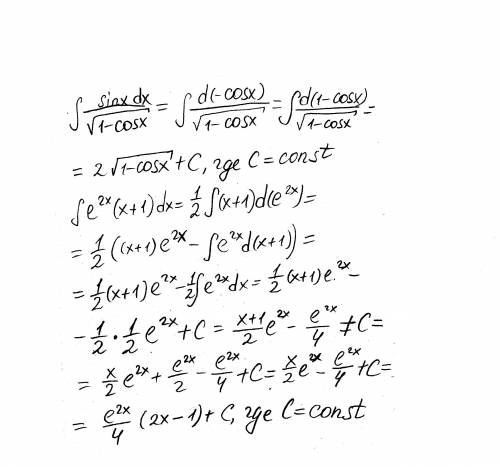 ∫ sinx dx / √(1-cosx) = ∫ d(-cosx) / √(1-cosx) = ∫ d(1-cosx) / √(1-cosx) =
= 2√(1-cosx) + C, где C = const
∫e^{2x}(x+1)dx = 1/2 ∫(x+1)d(e^{2x}) =
= 1/2 ((x+1)e^{2x} - ∫e^{2x}d(x+1)) =
= 1/2 (x+1)e^{2x} - 1/2 ∫e^{2x}dx = 1/2 (x+1)e^{2x} -
- 1/2 · 1/2 e^{2x} + C = x+1/2 e^{2x} - e^{2x}/4 + C =
= x/2 e^{2x} + e^{2x}/2 - e^{2x}/4 + C = x/2 e^{2x} - e^{2x}/4 + C =
= e^{2x}/4 (2x-1) + C, где C = const